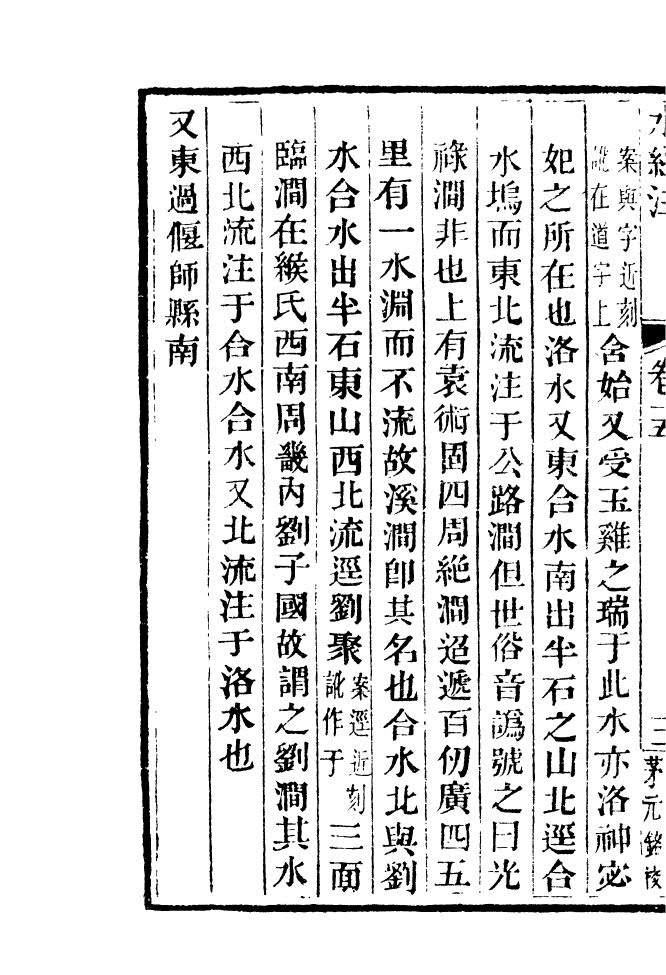 水經注 卷十五 二 茅元銘校
案與字近刻訛在道字上含始又受玉雞之瑞于此水亦洛神宓
妃之所在也洛水又東合水南出半石之山北逕合
水塢而東北流注于公路澗但世俗音譌號之曰光
祿澗非也上有袁術固四周絶澗迢遞百仞廣四五
里有一水淵而不流故溪澗卽其名也合水北與劉
水合水出半石東山西北流逕劉聚案逕近刻訛作于三面
臨澗在緱氏西南周畿內劉子國故謂之劉澗其水
西北流注于合水合水又北流注于洛水也
又東過偃師縣南